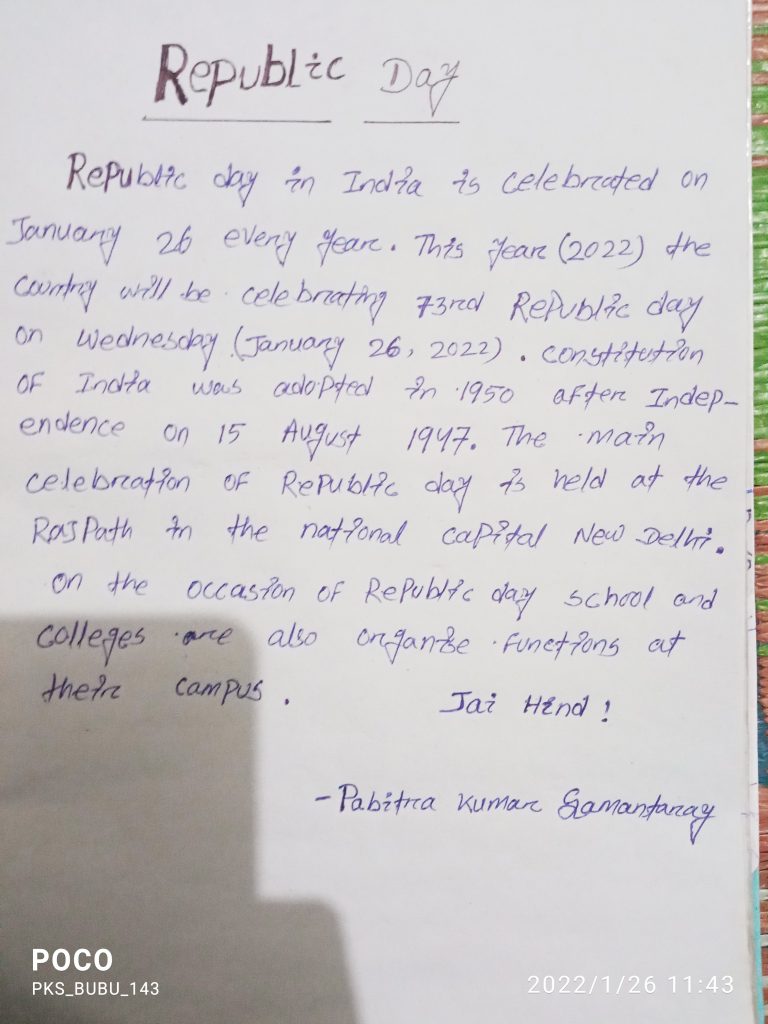 Republic Day
Republic day in India is celebrated on
January 26 every year. This year (2022) the
country will be celebrating 73rd Republic day
on Wednesday (January 26, 2022). constitution
of India was adopted in 1950 after Indep-
endence on 15 August 1947. The main
celebration of Republic day is held at the
RajPath in the national capital New Delhi.
on the occasion of Republic day school and
colleges are also organise functions at
their campus. Jai Hind!
-Pabitra Kumar Samantaray
POCO
PKS_BUBU_143
2022/1/26 11:43